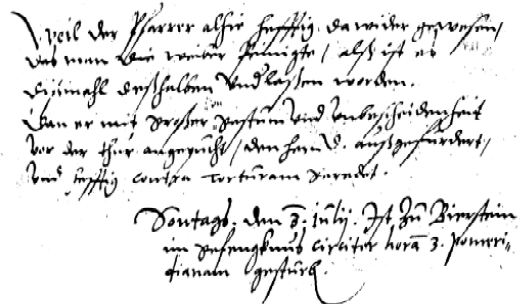 Weil der Pfarrer alhie hefftig dawider gewesen,
das man die weiber peinigte, alß ist er
dißmahl deßhalben undlaßen worden.
Dan er mit großer gestum und unbescheidenheit
vor der thür angepucht, den herrn D. außgefordert,
und hefftig contra torturam geredet.
Sontags den 3. Julij. Ist zu Bierstein
im gefengknus circiter hora 3. pomeri-
dianam gestorb.